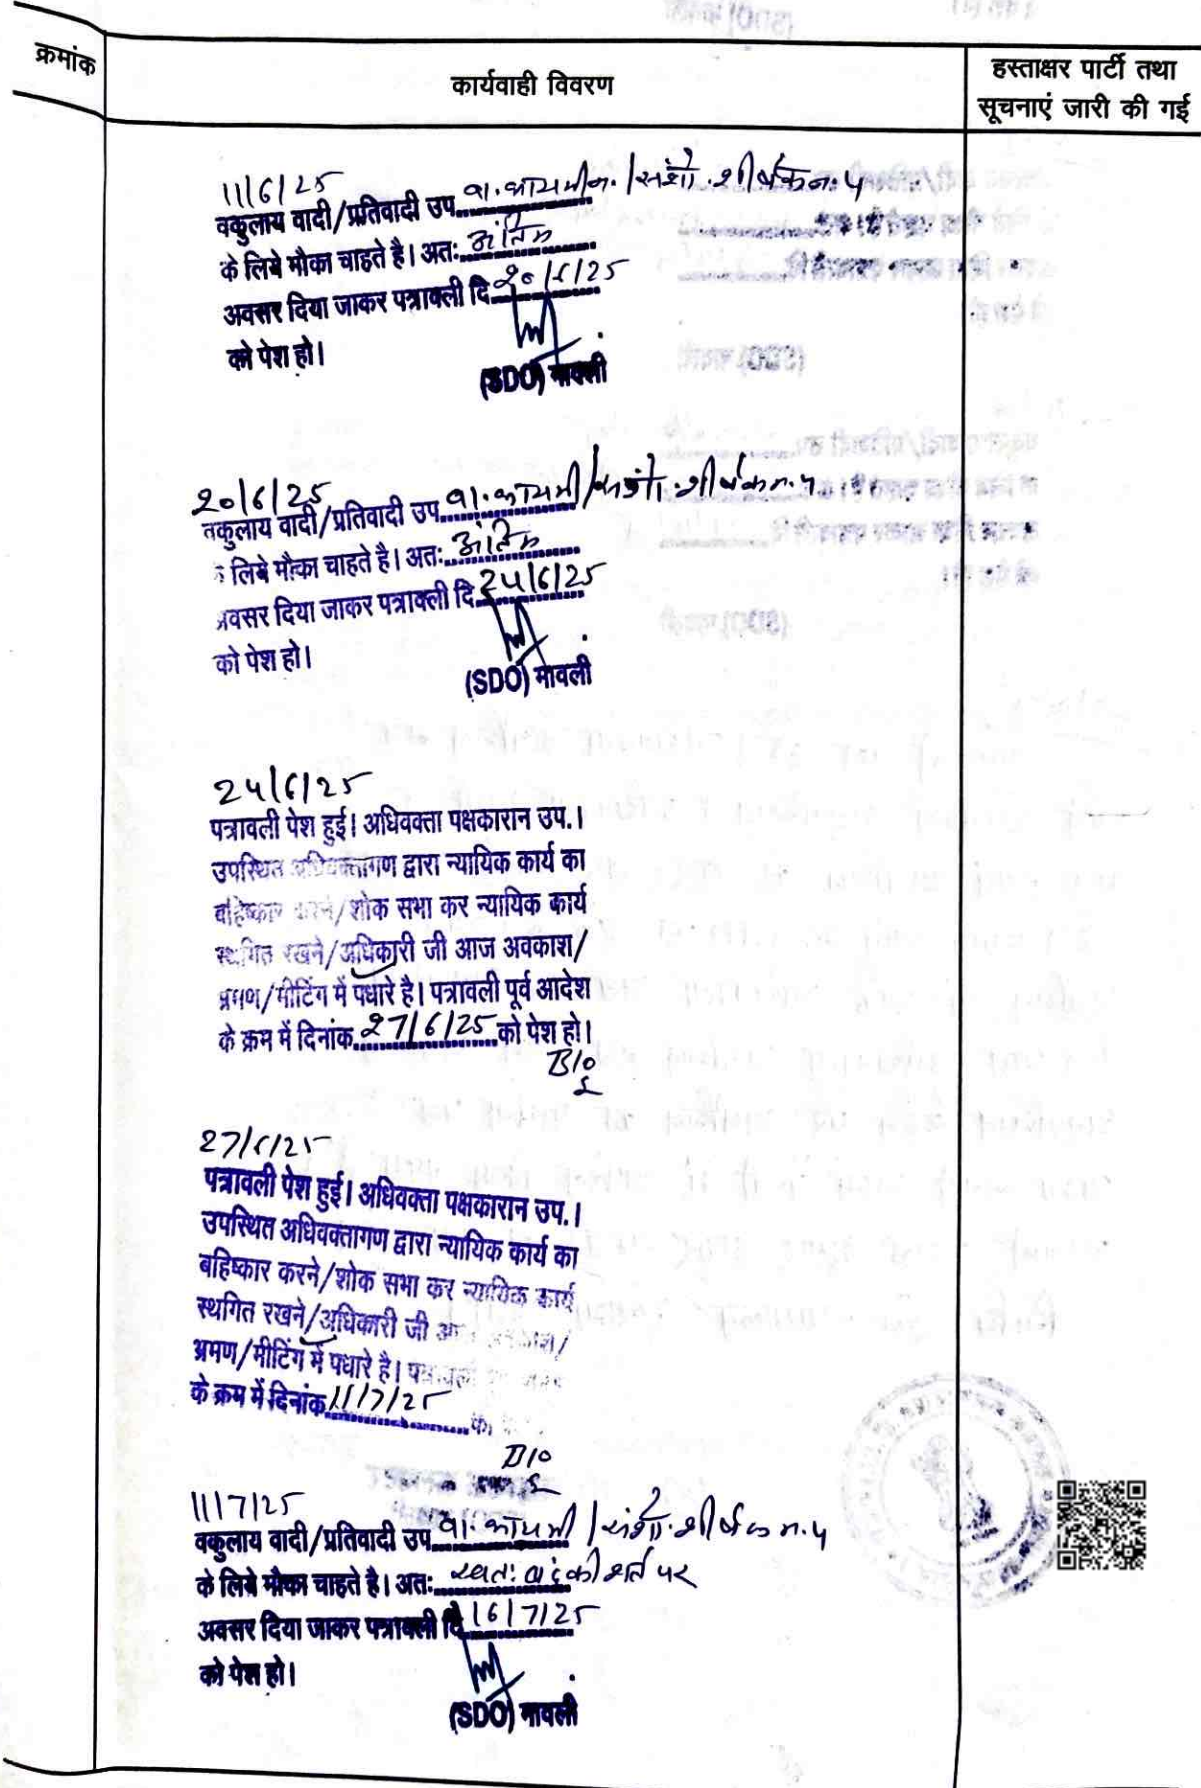 क्रमांक
कार्यवाही विवरण
हस्ताक्षर पार्टी तथा
सूचनाएं जारी की गई
11/6/25
वकुलाय वादी/प्रतिवादी उप......... शीर्षक न. 4
के लिये मौका चाहते है। अतः अंतिम
अवसर दिया जाकर पत्रावली दि. 20/6/25
को पेश हो।
(SDO) मावली
20/6/25
वकुलाय वादी/प्रतिवादी उप......... शीर्षक न. 4
के लिये मौका चाहते है। अतः अंतिम
अवसर दिया जाकर पत्रावली दि. 24/6/25
को पेश हो।
(SDO) मावली
24/6/25
पत्रावली पेश हुई। अधिवक्ता पक्षकारान उप.।
उपस्थित अधिवक्तागण द्वारा न्यायिक कार्य का
बहिष्कार करने/शोक सभा कर न्यायिक कार्य
स्थगित रखने/अधिकारी जी आज अवकाश/
भ्रमण/मीटिंग में पधारे है। पत्रावली पूर्व आदेश
के क्रम में दिनांक 27/6/25 को पेश हो।
B/o
27/6/25
पत्रावली पेश हुई। अधिवक्ता पक्षकारान उप.।
उपस्थित अधिवक्तागण द्वारा न्यायिक कार्य का
बहिष्कार करने/शोक सभा कर न्यायिक कार्य
स्थगित रखने/अधिकारी जी आज अवकाश/
भ्रमण/मीटिंग में पधारे है।
के क्रम में दिनांक 11/7/25
B/o
11/7/25
वकुलाय वादी/प्रतिवादी उप......... शीर्षक न. 4
के लिये मौका चाहते है। अतः स्वतः बंद की शर्त पर
अवसर दिया जाकर पत्रावली दि. 16/7/25
को पेश हो।
(SDO) मावली